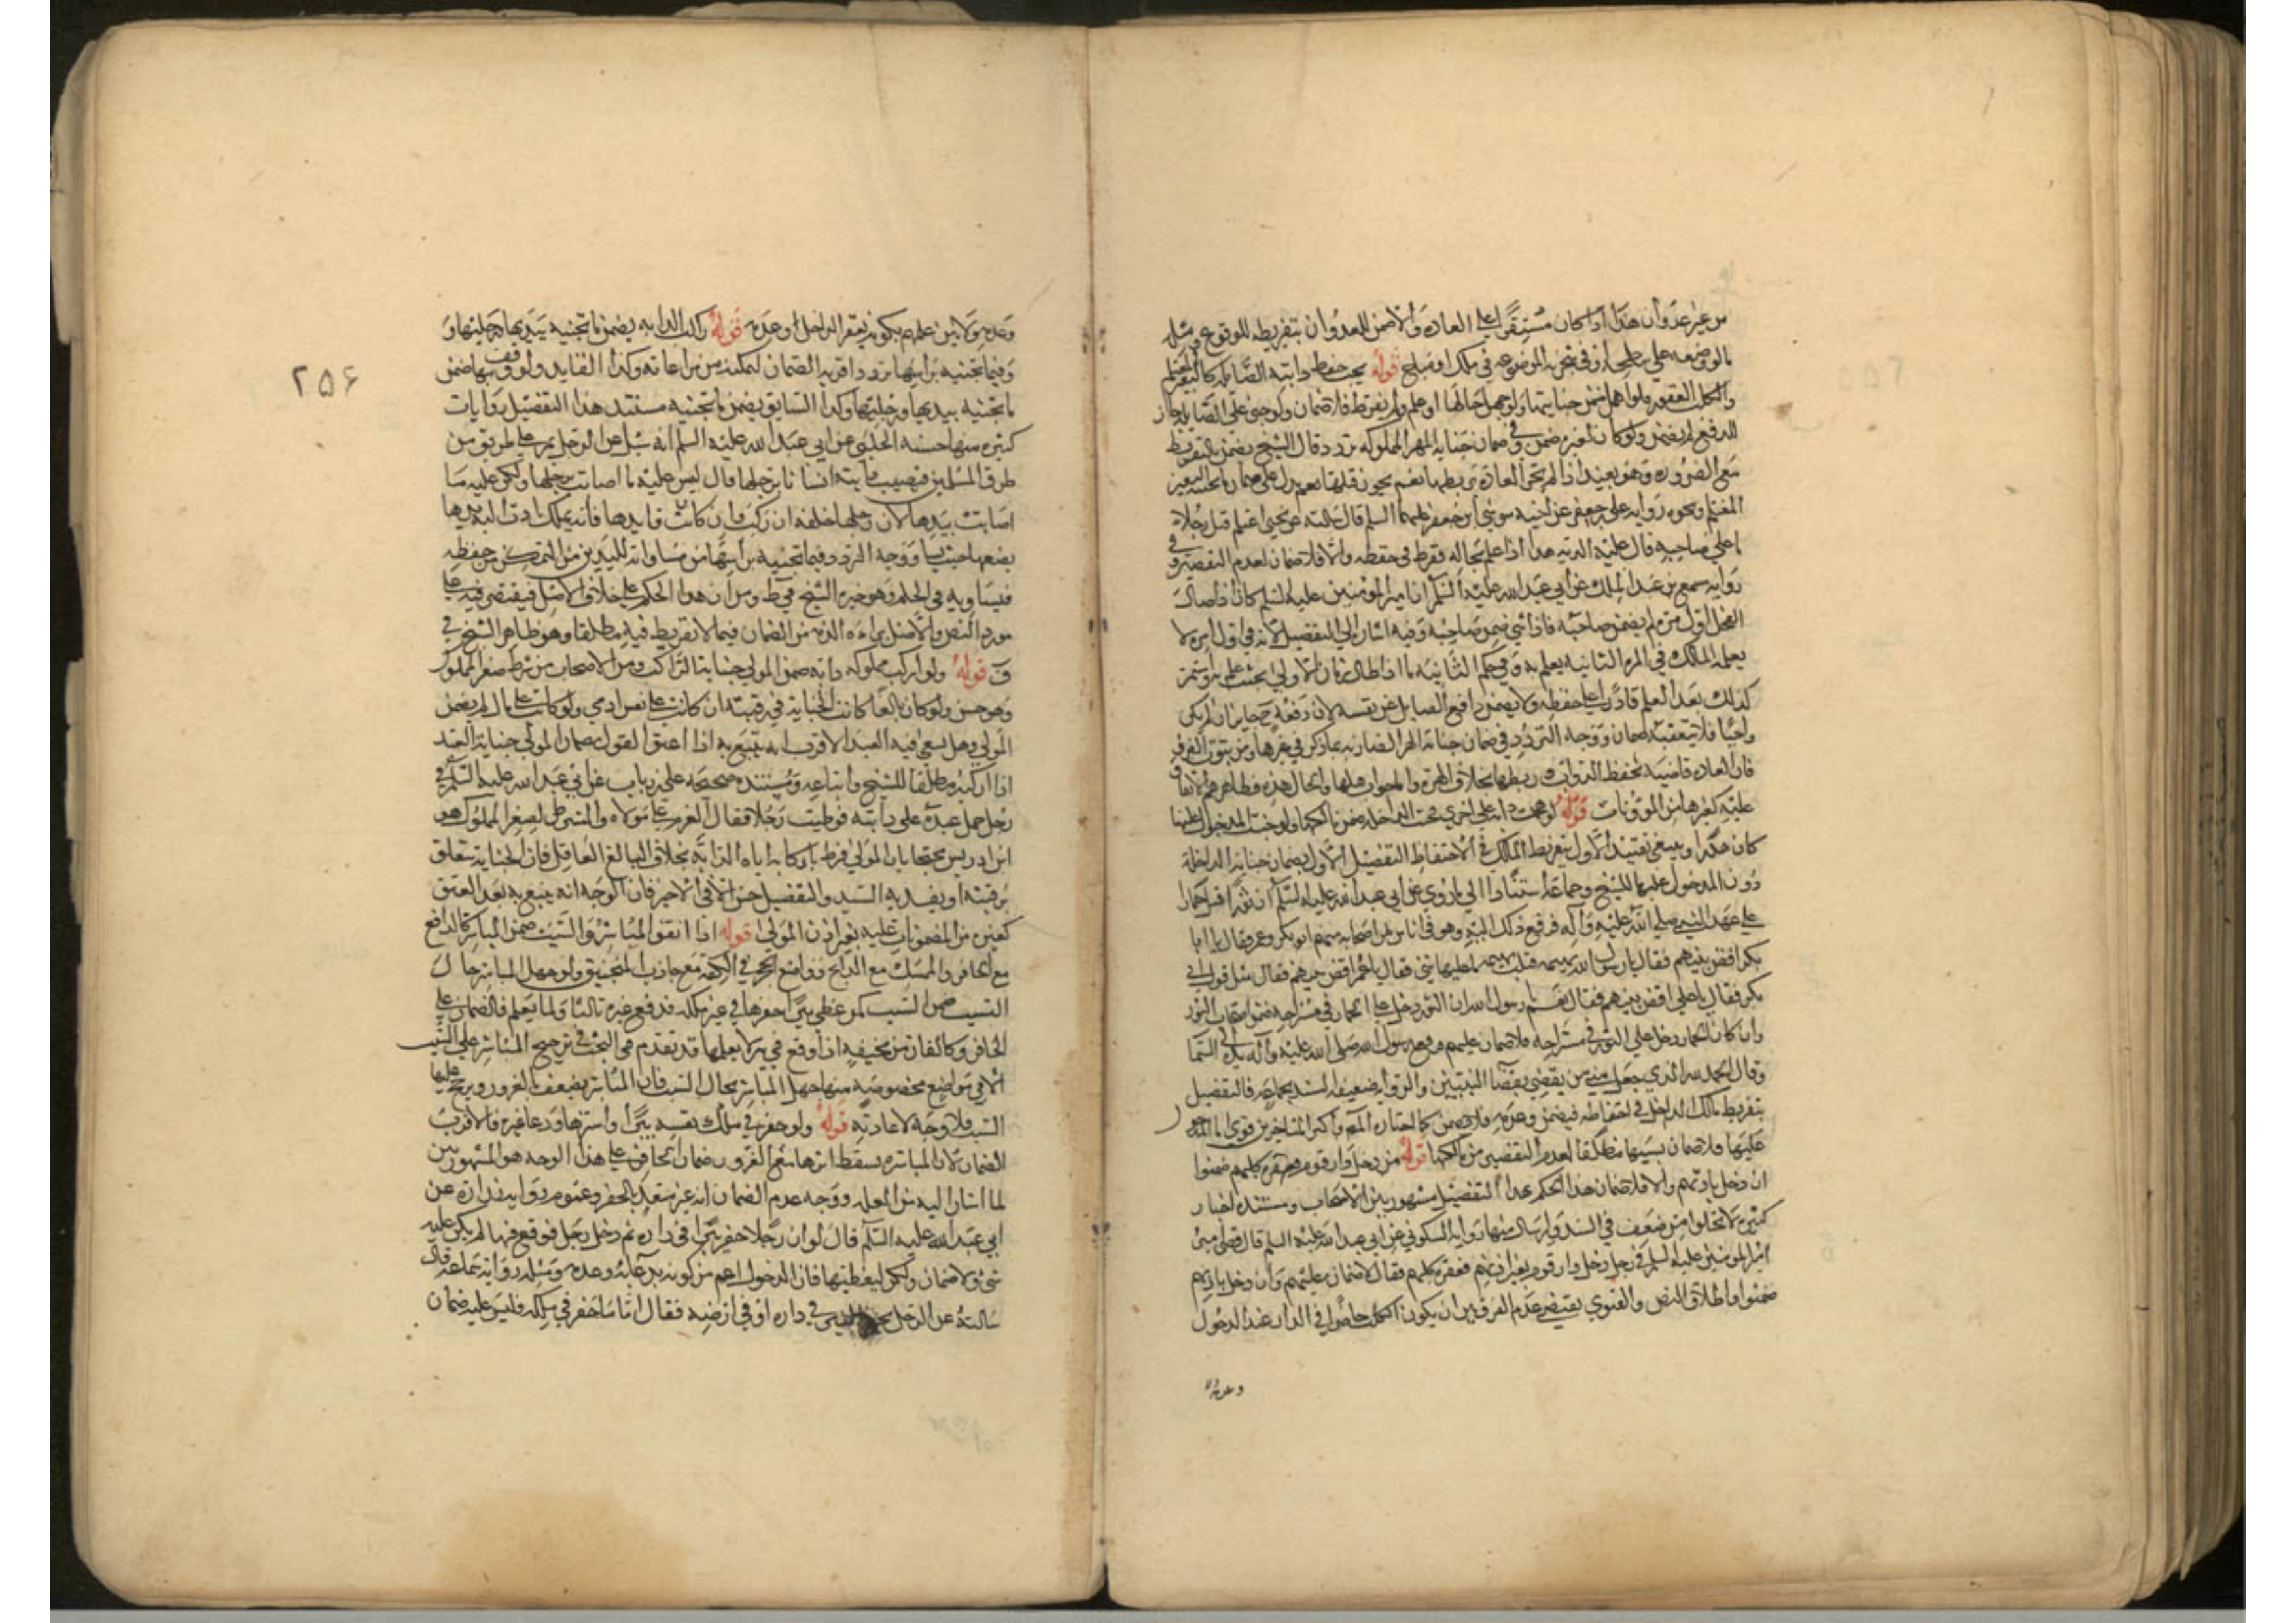 من غير عدوان هذا اذا كان مستقرا على العادة والا ضمن للعدوان بتفريطه للوقوع في مثله
ما لو وضعه على سطحه او في شجرته الموضوعة في ملك او مباح قوله يجب حفظ دابته الصايلة كالبعير المغتلم
والكلب العقور فلو اهمل ضمن جنايتها ولو جهل حالها او علم ولم يفرط فلا ضمان ولو جنى على الصايلة جان
للدفع لم يضمن ولو كان لغيره ضمن وفي ضمان جناية الهرة المملوكة تردد قال الشيخ يضمن بالتفريط
مع الضرورة وهو بعيد اذ لم تجر العادة بربطها نعم يجوز قتلها يدل على ضمان ما يجنيه البعير
المغتلم ونحوه رواية علي بن جعفر عن اخيه موسى بن جعفر عليهما السلم قال سالته عن بختي اغتلم قتل رجلا
ما على صاحبه قال عليه الدية هذا اذا علم بحاله وفرط في حفظه والا فلا ضمان لعدم التقصير وفي
رواية مسمع بن عبد الملك عن ابي عبد الله عليه السلم ان امير المؤمنين عليه السلم كان اذا صال
الفحل اول مرة لم يضمن صاحبه فاذا ثنى ضمن صاحبه وفيه اشارة الى التفصيل لانه في اول مرة لا
يعلم المالك وفي المرة الثانية يعلم به وفي حكم الثانية ما اذا طال زمان الاولى بحيث علم به واستمر
كذلك بعد العلم قادرا على حفظه ولا يضمن دافع الصايل عن نفسه لان دفعه جايز ان لم يكن
واجبا فلا يتعقبه ضمان ووجه التردد في ضمان جناية الهرة الضارية مما ذكر في غيرها ومن
فان العادة قاضية بحفظ الدواب وربطها بخلاف الهرة والجواب قتلها والحال هذه
عليه كغيرها من الموذيات قوله لو هجمت دابة على اخرى فجنت الداخلة ضمن مالكها ولو جنت المدخول عليها
كان هدرا وينبغي تقييد الاول بتفريط المالك في الاحتفاظ التفصيل الاول بضمان جناية الداخلة
دون المدخول عليها للشيخ وجماعة استنادا الى ما روي عن ابي عبد الله عليه السلم ان ثورا قتل حمارا
على عهد النبي صلى الله عليه وآله فرفع ذلك اليه وهو في اناس من اصحابه منهم ابو بكر وعمر فقال يا ابا
بكر اقض بينهم فقال يا رسول الله بهيمة قتلت بهيمة ما عليها شي فقال يا عمر اقض بينهم فقال مثل قول ابي
بكر فقال يا علي اقض بينهم فقال نعم يا رسول الله ان كان الثور دخل على الحمار في مستراحه ضمن اصحاب الثور
وان كان الحمار دخل على الثور في مستراحه فلا ضمان عليهم فرفع رسول الله صلى الله عليه وآله يده الى السما
وقال الحمد لله الذي جعل مني من يقضي بقضا النبيين والرواية ضعيفة السند فالتفصيل
بتفريط مالك الداخلة في احتفاظه فيضمن وعدمه فلا يضمن كما اختاره المص واكثر المتاخرين قوي
عليها فلا ضمان بسببها مطلقا لعدم التقصير من مالكها قوله من دخل دار قوم فعقره كلبهم ضمنوا
ان دخل باذنهم والا فلا ضمان هذا الحكم بهذا التفصيل مشهور بين الاصحاب ومستنده اخبار
كثيرة لا تخلوا من ضعف في السند وارسال منها رواية السكوني عن ابي عبد الله عليه السلم قال قضى
امير المومنين عليه السلم في رجل دخل دار قوم بغير اذنهم فعقره كلبهم فقال لا ضمان عليهم وان دخل باذنهم
ضمنوا واطلاق النص والفتوى يقتضي عدم الفرق بين ان يكون الكلب حاضرا في الدار عند الدخول
وعدمه ولا
٢٥٦
وعدمه ولا بين علمهم بكونه يعقر الداخل وعدمه قوله راكب الدابة يضمن ما تجنيه بيديها
وفيما تجنيه براسها تردد اقربه الضمان لتمكنه من مراعاته وكذا القايد ولو وقف بها ضمن
ما تجنيه بيديها ورجليها وكذا السايق يضمن ما تجنيه مستند هذا التفصيل روايات
كثيرة منها حسنة الحلبي عن ابي عبد الله عليه السلم انه سئل عن الرجل يمر على طريق من
طرق المسلمين فتصيب دابته انسانا برجلها قال ليس عليه ما اصابت برجلها ولكن عليه ما
اصابت بيدها لان رجلها خلفه ان ركب وان كان قايدها فانه يملك باذن الله يدها
يضعها حيث يشا ووجه التردد فيما تجنيه براسها من مساواته لليدين من التمكن من حفظه
فيساويه في الحكم وهو خيرة الشيخ في ط ومن ان هذا الحكم على خلاف الاصل فيقتصر فيه على
مورد النص والاصل براءة الذمة من الضمان فيما لا تفريط فيه مطلقا وهو ظاهر الشيخ في
ف قوله ولو اركب مملوكه دابة ضمن المولى جناية الراكب ومن الاصحاب من شرط صغر المملوك
وهو حسن ولو كان بالغا كانت الجناية في رقبته ان كانت على نفس ادمي ولو كانت على مال لم يضمن
المولى وهل يسعى فيه العبد الاقرب انه يتبع به اذا اعتق القول بضمان المولى جناية العبد
اذا اركبه مطلقا للشيخ واتباعه ومستنده صحيحة علي بن رياب عن ابي عبد الله عليه السلم في
رجل حمل عبده على دابته فوطيت رجلا فقال الغرم على مولاه والمشترط لصغر المملوك هو
ابن ادريس محتجا بان المولى فرط باركابه اياه الدابة بخلاف البالغ العاقل فان الجناية تتعلق
برقبته او يفديه السيد والتفصيل حسن الا في الاخير فان الوجه انه يتبع به بعد العتق
كغيره من المضمونات عليه بغير اذن المولى قوله اذا اتفق المباشر والسبب ضمن المباشر كالدافع
مع الحافر والممسك مع الذابح وواضع الحجر في الكفة مع جاذب المنجنيق ولو جهل المباشر حال
السبب ضمن السبب كمن غطى بئرا حفرها في غير ملكه فدفع غيره ثالثا ولما يعلم فالضمان على
الحافر وكالفار من مخيفه اذا وقع في بئر لا يعلمها قد تقدم في البحث في ترجيح المباشر على السبب
الا في مواضع مخصوصة منها جهل المباشر بحال السبب فان المباشر يضعف بالغرور ويرجح عليها
السبب فلا وجه لاعادته قوله ولو حفر في ملك نفسه بئرا وسترها ودعا غيره فالاقرب
الضمان لان المباشرة يسقط اثرها مع الغرور ضمان الحافر على هذا الوجه هو المشهور بين
لما اشار اليه من العلة ووجه عدم الضمان انه غير متعد بالحفر وعموم رواية زرارة عن
ابي عبد الله عليه السلم قال لو ان رجلا حفر بئرا في داره ثم دخل رجل فوقع فيها لم يكن عليه
شي ولا ضمان ولكن ليغطيها فان الدخول اعم من كونه بدعائه وعدمه ومثله رواية سماعة قال
سالته عن الرجل يحفر البئر في داره او في ارضه فقال اما ما حفر في ملكه فليس عليه ضمان